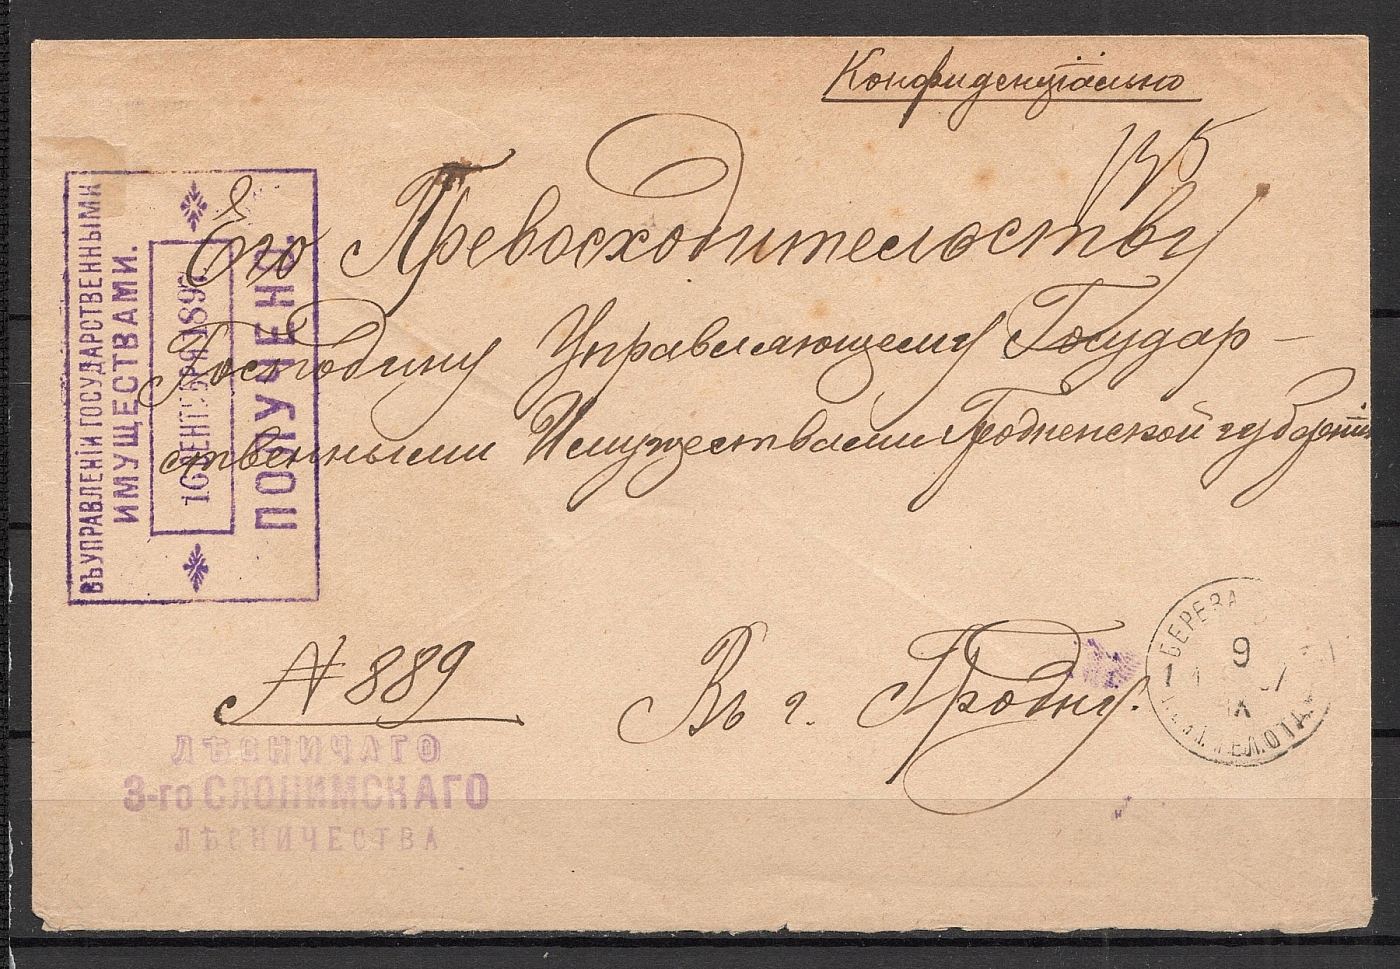 Конфиденціально
Его Превосходительству
Господину Управляющему Государ-
ственными Имуществами Гродненской губерніи
Въ г. Гродну.
№ 889
ЛѢСНИЧАГО
3-го СЛОНИМСКАГО
ЛѢСНИЧЕСТВА
ВЪ УПРАВЛЕНІИ ГОСУДАРСТВЕННЫМИ
ИМУЩЕСТВАМИ.
16 СЕНТЯБРЯ 189
ПОЛУЧЕНО.
БЕРЕЗА
9
IX